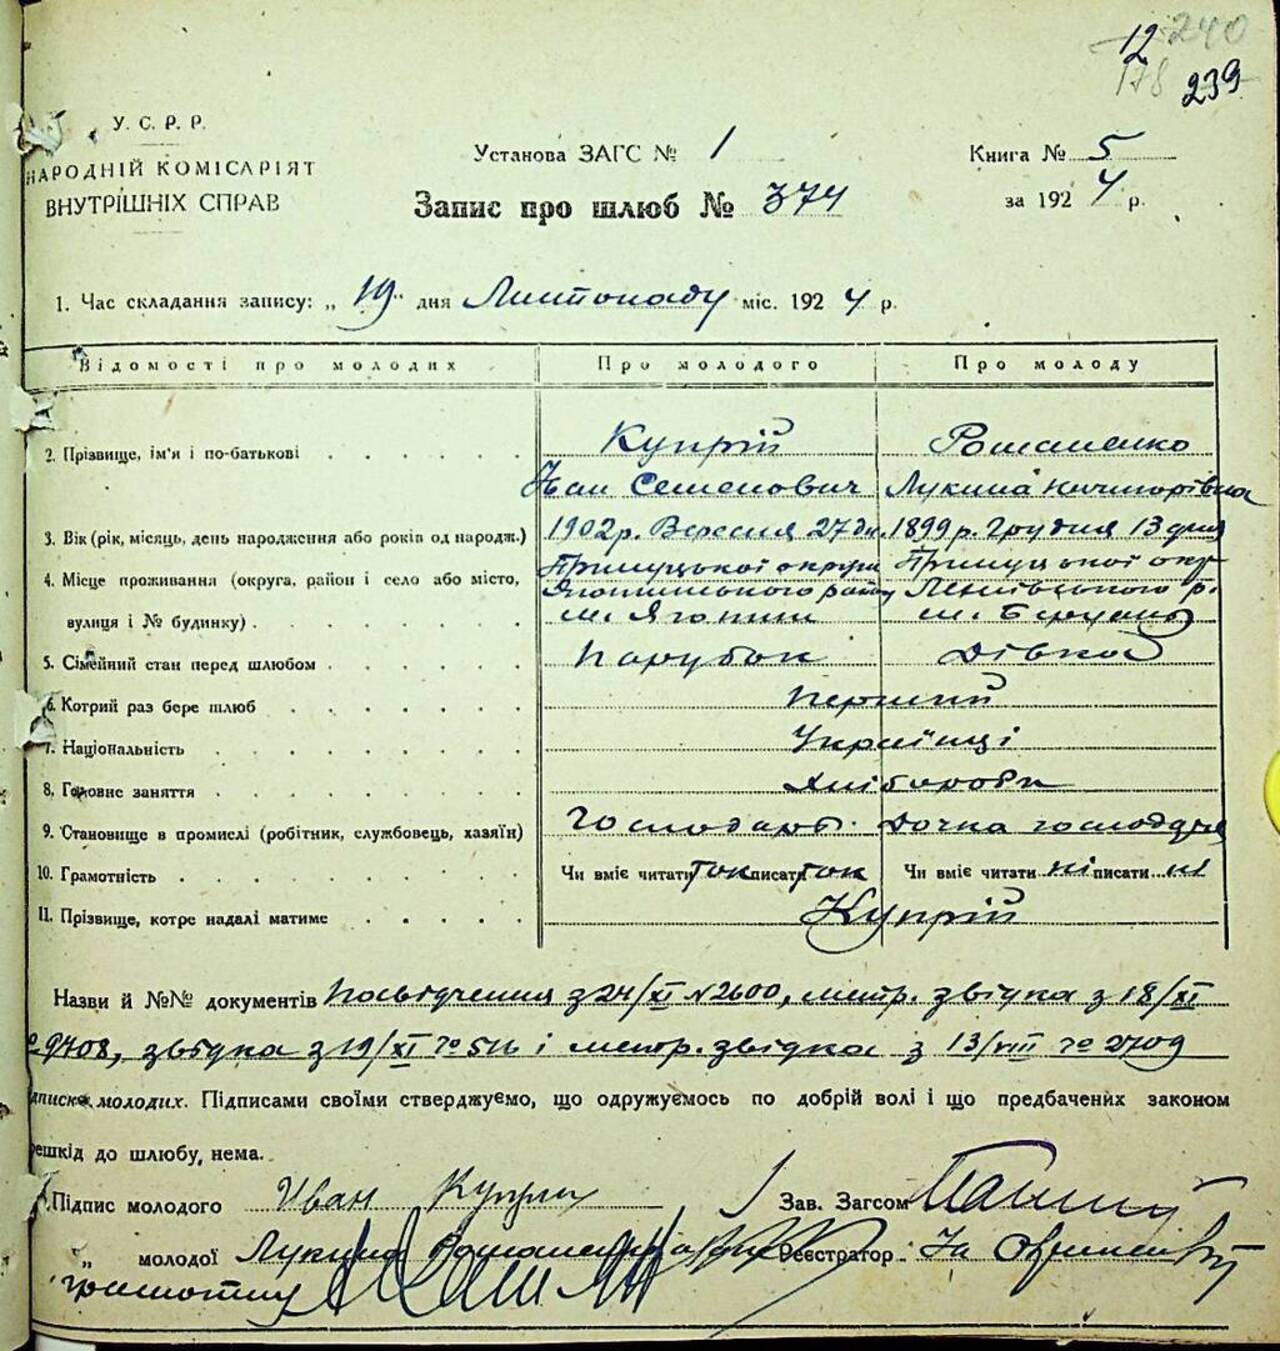 12 240
178 239
У. С. Р. Р.
НАРОДНІЙ КОМІСАРІЯТ
ВНУТРІШНІХ СПРАВ
Установа ЗАГС № 1
Книга № 5
Запис про шлюб № 374
за 1924 р.
1. Час складання запису: „19" дня Листопаду міс. 1924 р.
Відомості про молодих Про молодого Про молоду
2. Прізвище, ім'я і по-батькові Купрій Романенко
Іван Семенович Лукина Ничипорівна
3. Вік (рік, місяць, день народження або років од народж.) 1902 р. Вересня 27 дн. 1899 р. Грудня 13 дня
4. Місце проживання (округа, район і село або місто, Прилуцької округи Прилуцької окр
Яготинського району р.
вулиця і № будинку) м. Яготин м. Березань
5. Сімейний стан перед шлюбом Парубок Дівка
6. Котрий раз бере шлюб Перший
7. Національність Українці
8. Головне заняття Хлібороби
9. Становище в промислі (робітник, службовець, хазяїн) Господарь Дочка господаря
10. Грамотність Чи вміє читати так писати так Чи вміє читати ні писати ні
11. Прізвище, котре надалі матиме Купрій
Назви й №№ документів Посвідчення з 24/XI № 2600, метр. звідка з 18/XI
9408, звідка з 19/XI № і метр. звідка з 13/VIII № 2709
дписка молодих. Підписами своїми стверджуємо, що одружуємось по добрій волі і що предбачених законом
решкід до шлюбу, нема.
Підпис молодого Иван Куприй Зав. Загсом
„ молодої Лукина Романенко Реєстратор